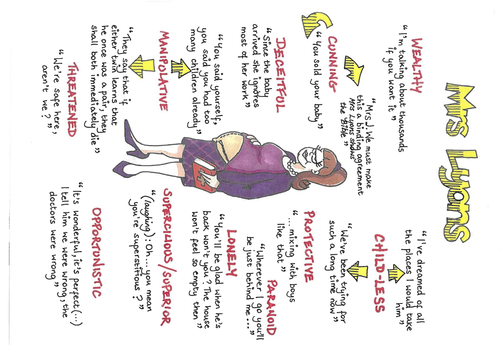 Mrs Lyons
WEALTHY
"I'm talking about thousands
if you want it
"Mrs J. We must make
this a binding agreement
Mrs Lyons shows
the Bible"
CUNNING
"You said your baby"
DECEITFUL
"Since the baby
arrived she ignores
most of her work
"You said yourself,
you said you had too
many children already"
MANIPULATIVE
"They say that if
either twin learns that
he once was a pair, they
shall both immediately die"
THREATENED
"We're safe here,
aren't we?"
"I've dreamed of all
the places I would take
him"
CHILD-LESS
"We've been trying for
such a long time now"
PROTECTIVE
"... mixing with boys
like that"
PARANOID
"Wherever I go you'll
be just behind me..."
LONELY
"You'll be glad when he's
back won't you? The house
won't feel so empty then"
SUPERCILIOUS/SUPERIOR
"(laughing): Oh... you mean
you're superstitious?"
OPPORTUNISTIC
"It's wonderful, it's perfect (...)
I tell him we were wrong, the
doctors were wrong"